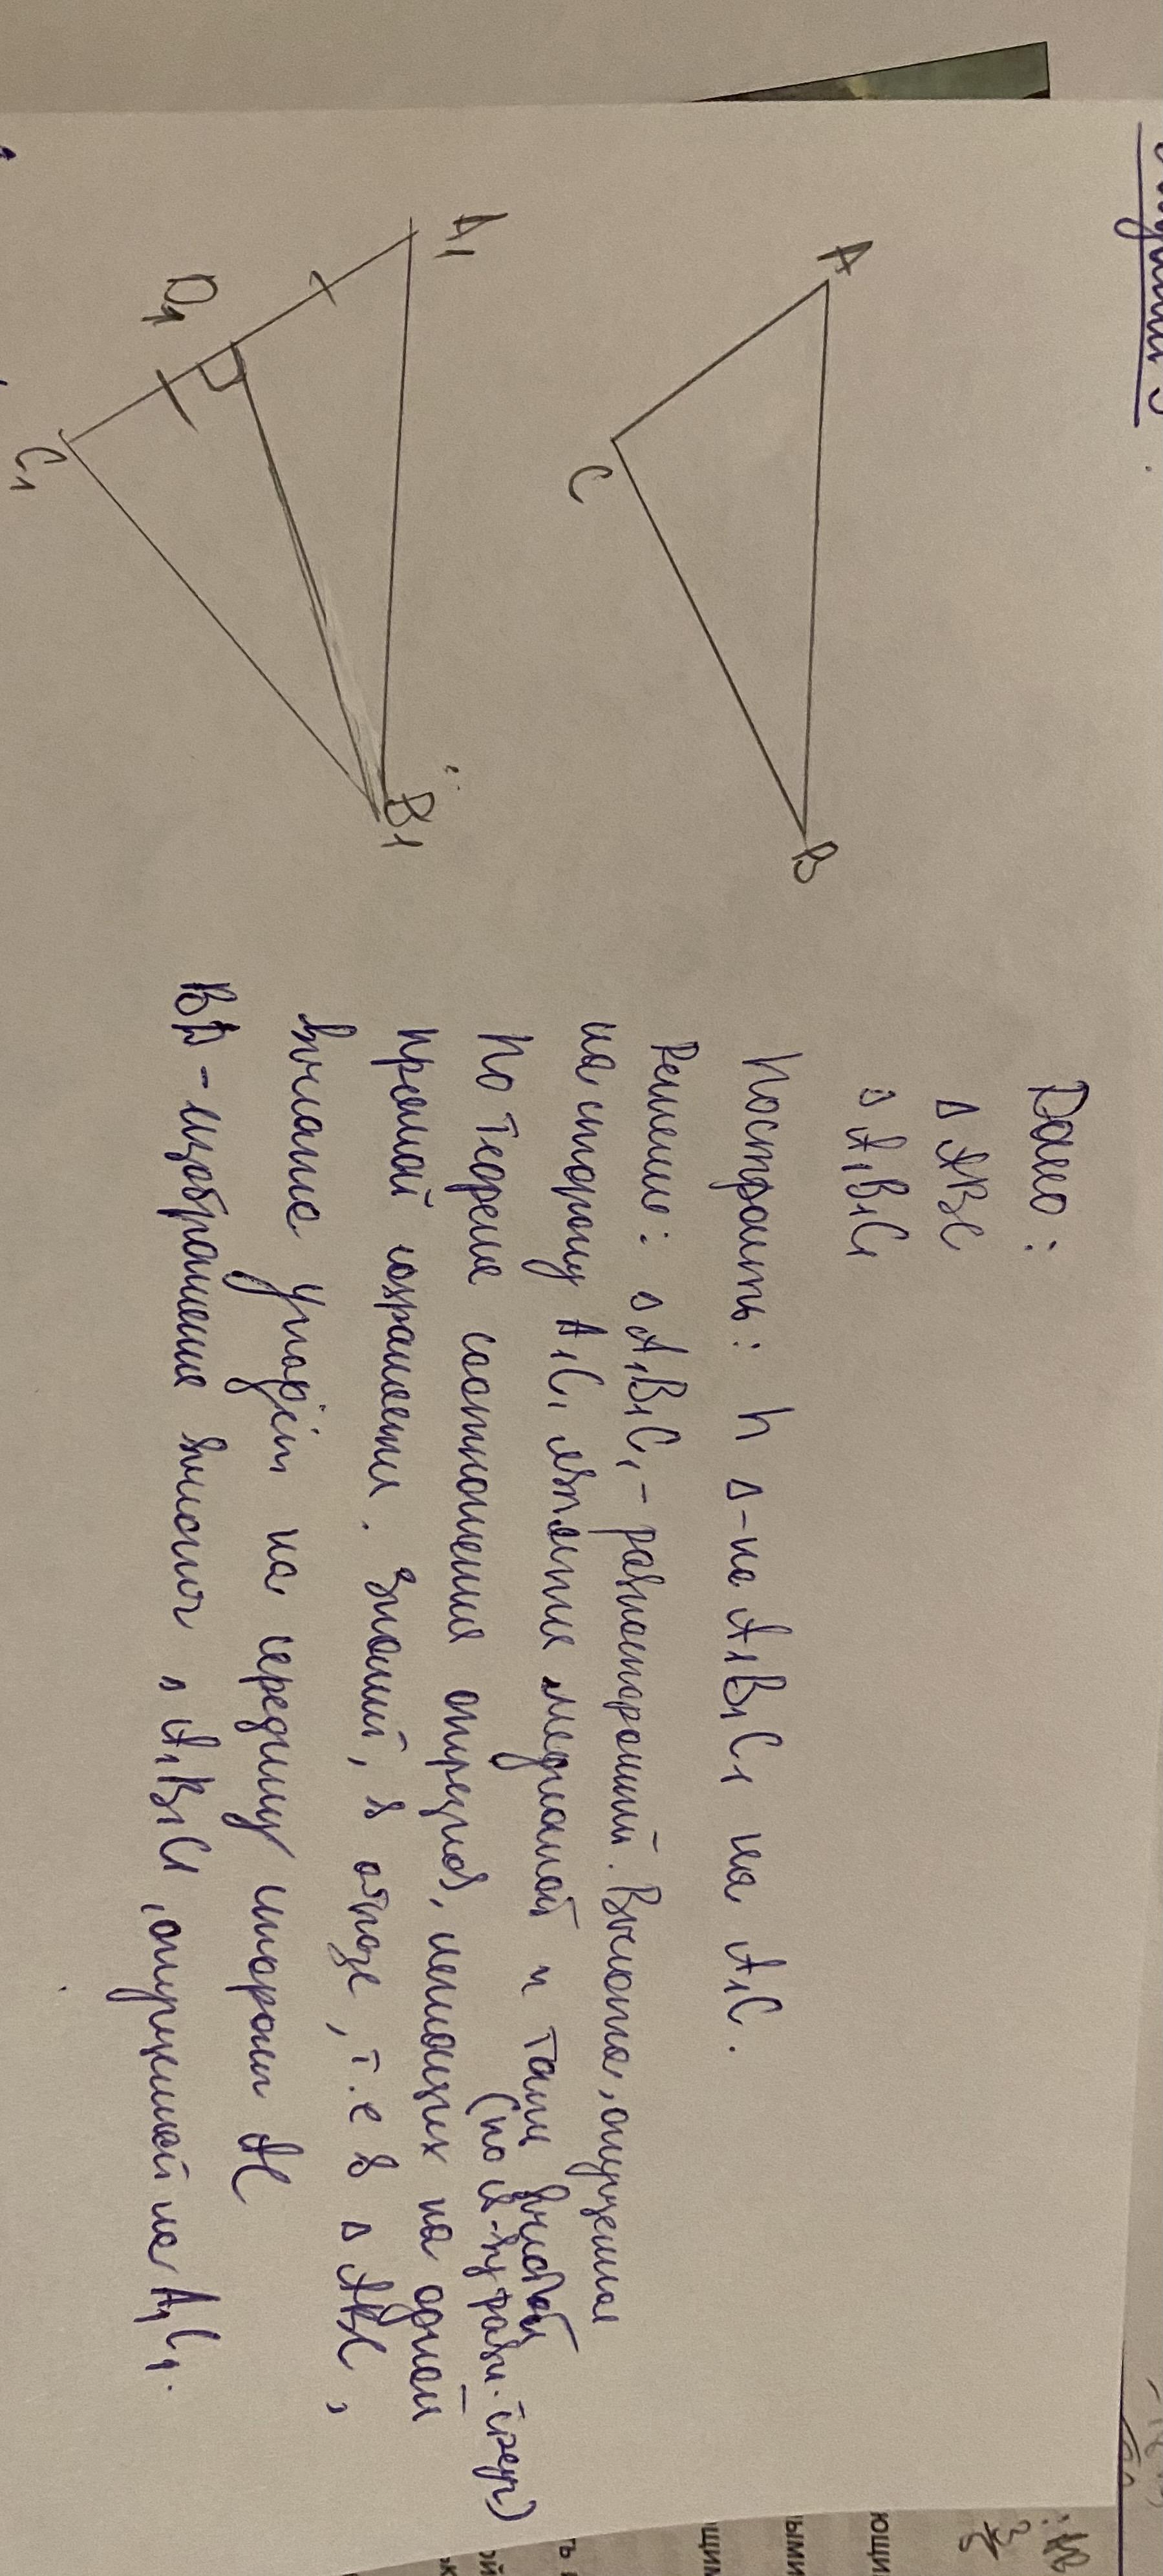 A
B
C
A₁
B₁
C₁
D₁
Дано:
△ ABC
△ A₁B₁C₁
Построить: h △-ка A₁B₁C₁ на A₁C₁.
Решение: △ A₁B₁C₁ - равносторонний. Высота, опущенная
на сторону A₁C₁ является медианой и также высотой
(по св-ву равн. треуг)
По теореме соотношение отрезков, лежащих на одной
прямой сохраняется. Значит, в образе, т.е в △ ABC,
высота упадёт на середину стороны AC
BD - изображение высоты △ A₁B₁C₁, опущенной на A₁C₁.